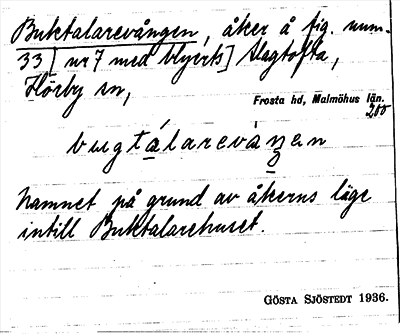 Buktalarevången, åker å fig. num.
33 [nr 7 med blyerts] Slagtofta,
Hörby sn,
Frosta hd, Malmöhus län.
bugtálareváŋen
Namnet på grund av åkerns läge
intill Buktalarehuset.
GÖSTA SJÖSTEDT 1936.